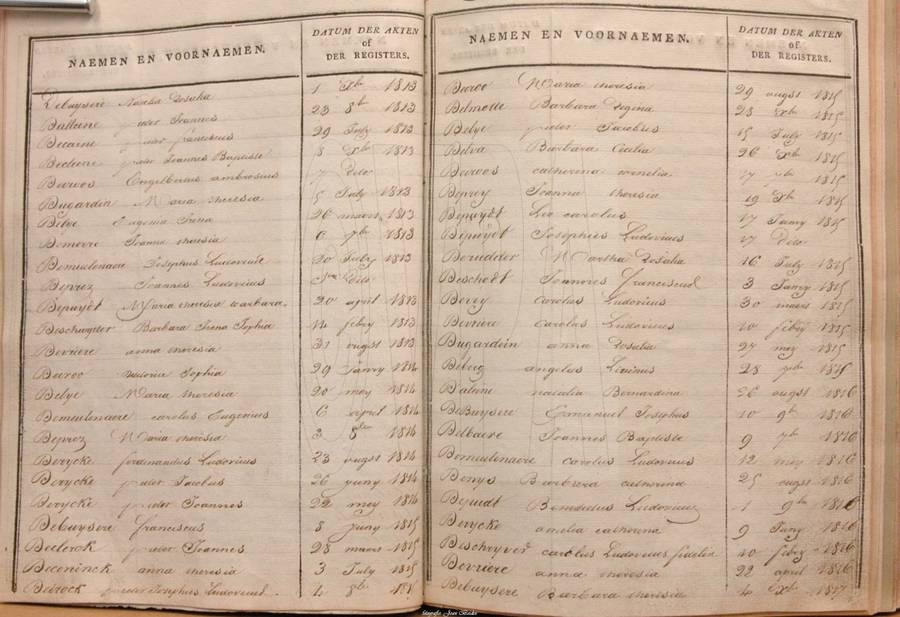 NAEMEN EN VOORNAEMEN.
DATUM DER AKTEN
of
DER REGISTERS.
Debuysere Natalia Rosalia 1 Xb 1813
Battaine pieter Joannes 23 8b 1813
Becaine pieter franciscus 29 July 1813
Beclerne pieter Joannes Baptiste 8 Xb 1813
Beroos Engelbertus ambrosius 7 Dito
Bugardin Maria theresia 5 July 1813
Belye Eugenia Irena 26 maars 1813
Bemerre Joanna theresia 6 7b 1813
Bemeulenaere Josephus Ludovicus 20 July 1813
Beprez Joannes Ludovicus Dito
Bepuydt Maria theresia barbara 20 april 1813
Beschuyter Barbara Irena Sophia 14 febry 1813
Beverere anna theresia 31 augst 1813
Beroo Sophia 29 Janry 1814
Belye Maria theresia 20 mey 1814
Bemeulenaere carolus Eugenius 6 april 1814
Beprez Maria theresia 3 8ber 1814
Berycke ferdinandus Ludovicus 23 augst 1814
Berycke pieter Jacobus 26 juny 1814
Berycke pieter Joannes 22 mey 1814
Bebuysere franciscus 8 juny 1815
Beclerck pieter Joannes 28 maars 1815
Beconinck anna theresia 3 July 1815
Berock pieter Josephus Ludovicus 4 8b 1815
NAEMEN EN VOORNAEMEN.
DATUM DER AKTEN
of
DER REGISTERS.
Beroo Maria theresia 29 augst 1815
Belmotte Barbara Regina 23 Xb 1815
Belye pieter Jacobus 15 July 1815
Belva Barbara Cecilia 26 Xb 1815
Beroos catherina cornelia 17 1815
Beprey Joanna theresia 19 1815
Bepuydt Leo carolus 17 Janry 1815
Bepuydt Josephus Ludovicus 17 Dito
Beruddier Martha Rosalia 16 July 1815
Beschodt Joannes franciscus 3 Janry 1815
Berey carolus Ludovicus 30 maars 1815
Berriere carolus Ludovicus 10 febry 1815
Bugardein anna Rosalia 27 mey 1815
Beleug angelus Livinus 28 1815
Batune natalia Bernardina 26 augst 1816
Bebuysere Emanuel Josephus 10 9b 1816
Belbaere Joannes Baptiste 9 7b 1816
Bemeulenaere carolus Ludovicus 12 mey 1816
Benys Barbara catherina 25 augst 1816
Bepuidt Benedictus Ludovicus 1 9b 1816
Berycke amelia catherina 9 Juny 1816
Beschryver carolus Ludovicus fidelis 10 febry 1816
Berriere anna theresia 22 april 1816
Bebuysere Barbara theresia 4 Xb 1817